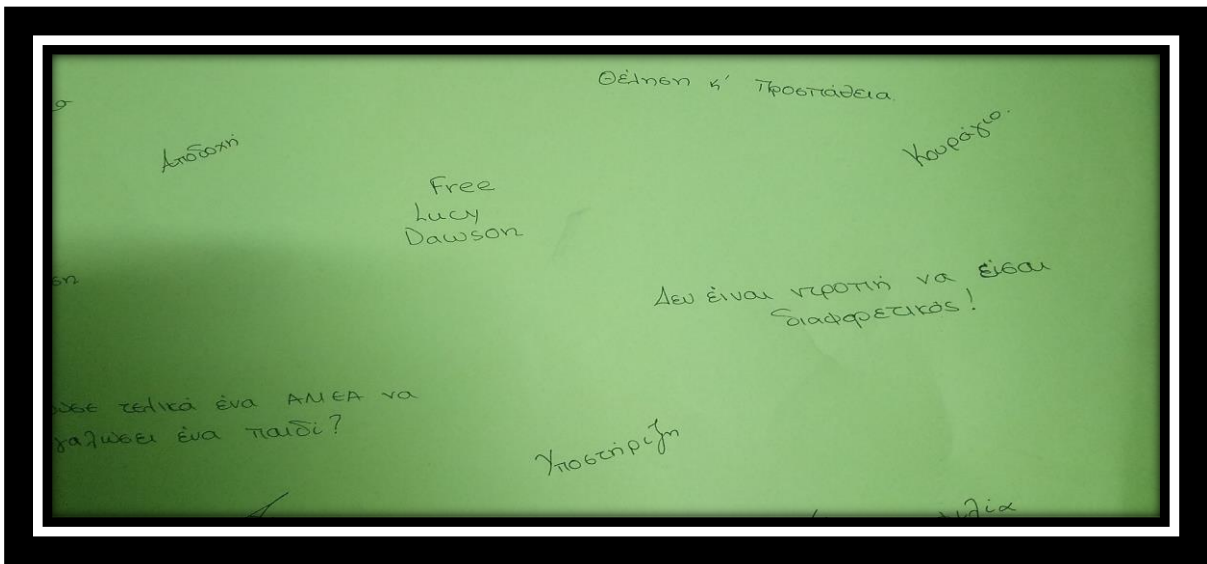 Θέληση κ' Προσπάθεια.
Αποδοχή
Κουράγιο.
Free
Lucy
Dawson
Δεν είναι ντροπή να είσαι
διαφορετικός!
τελικά ένα ΑΜΕΑ να
ένα παιδί?
Υποστήριξη